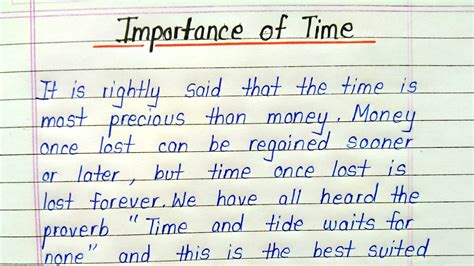 Importance of Time
It is rightly said that the time is
most precious than money. Money
once lost can be regained sooner
or later, but time once lost is
lost forever. We have all heard the
proverb "Time and tide waits for
none" and this is the best suited